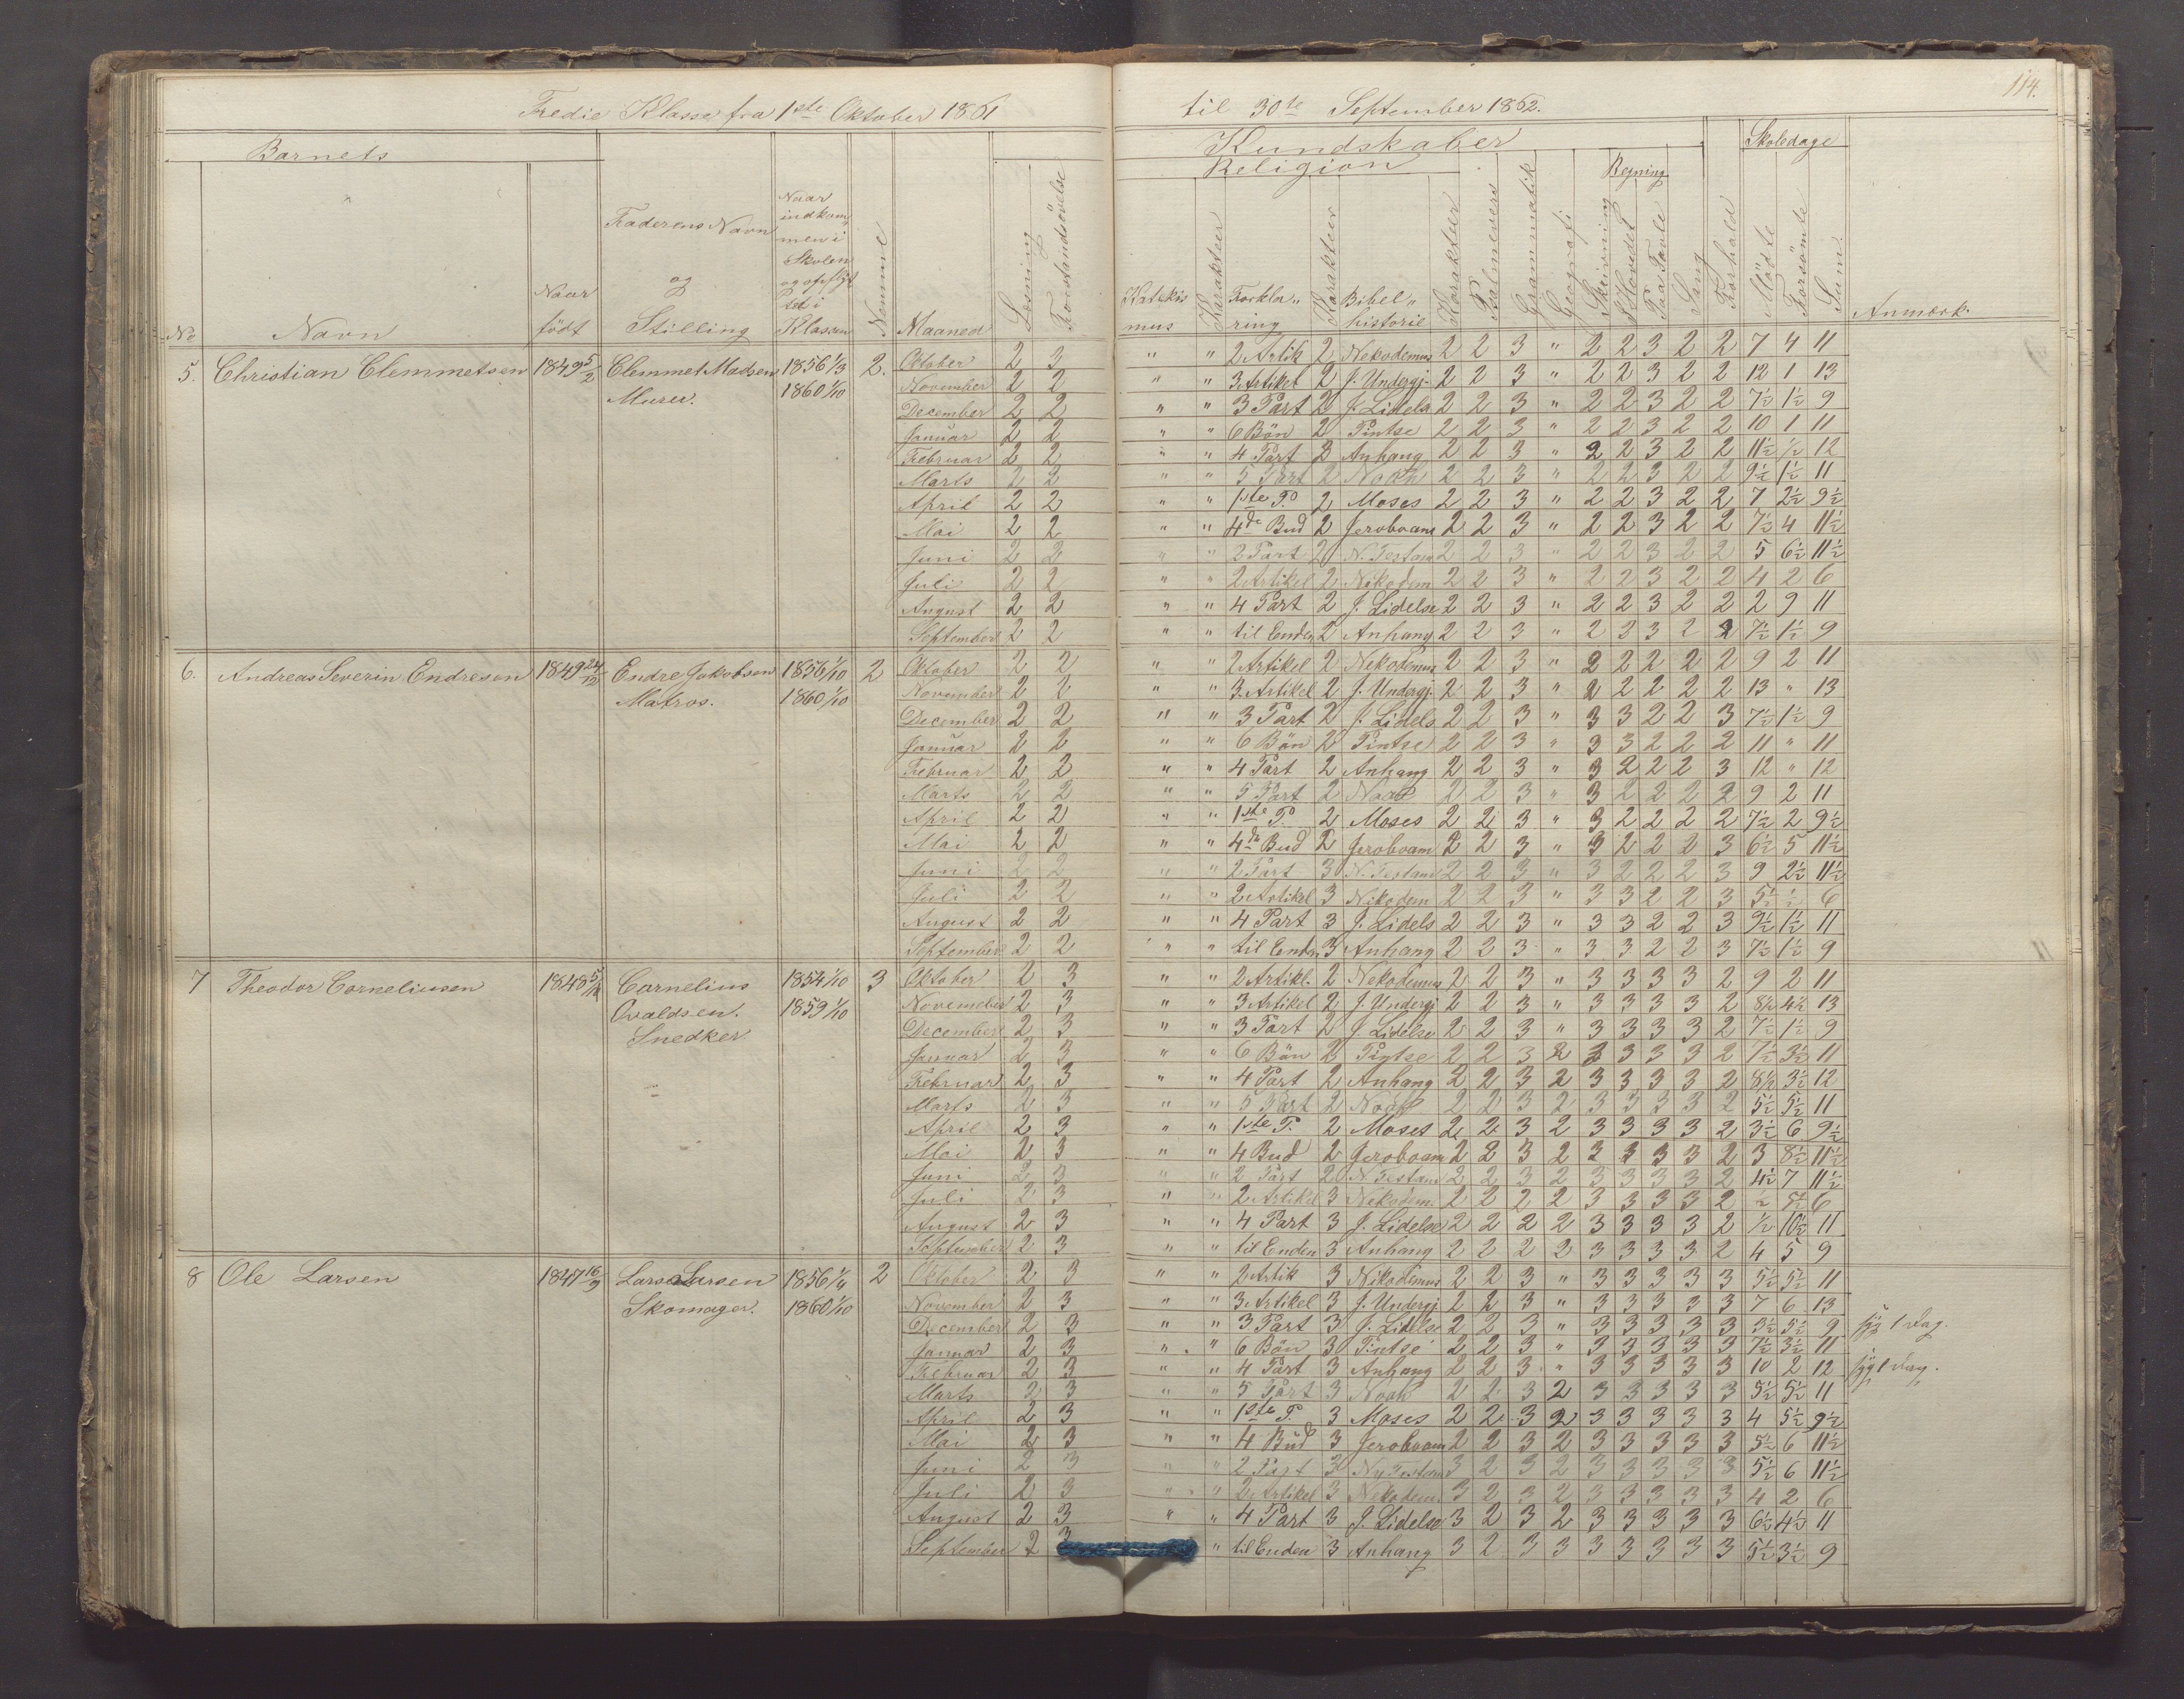 114.
Tredie Klasse fra 1ste Oktober 1861 til 30te September 1862.
Barnets
Kundskaber
Skoledage
Religion
Regning
No Navn Naar födt Faderens Navn og Stilling Naar indkommen i Skolen og opflyt tet i Klassen Nummer Maaned Læsning Forstandsövelse Katekismus Karakteer Forklaring Karakteer Bibelhistorie Karakteer Psalmevers Grammatik Geografi Skrivning I Hovedet Paa Tavle Sang Forhold Mödte Forsömte Sum. Anmærk.
5. Christian Clemmetsen 1849 5/2 Clemmet Madsen 1856 1/3 2. Oktober 2 3 " " 2 Artik 2 Nekodemus 2 2 3 " 2 2 3 2 2 7 4 11
Murer. 1860 1/10 November 2 2 " " 3 Artikel 2 J. Undergj. 2 2 3 " 2 2 3 2 2 12 1 13
December 2 2 " " 3 Part 2 J. Lidels 2 2 3 " 2 2 3 2 2 7½ 1½ 9
Januar 2 2 " " 6 Bön 2 Pintse 2 2 3 " 2 2 3 2 2 10 1 11
Februar 2 2 " " 4 Part 2 Anhang 2 2 3 " 2 2 3 2 2 11½ ½ 12
Marts 2 2 " " 5 Part 2 Noah 2 2 3 " 2 2 3 2 2 9½ 1½ 11
April 2 2 " " 1ste P. 2 Moses 2 2 3 " 2 2 3 2 2 7 2½ 9½
Mai 2 2 " " 4de Bud 2 Jeroboam 2 2 3 " 2 2 3 2 2 7½ 4 11½
Juni 2 2 " " 2 Part 2 N. Testam 2 2 3 " 2 2 3 2 2 5 6½ 11½
Juli 2 2 " " 2 Artikel 2 Nikodem 2 2 3 " 2 2 3 2 2 4 2 6
August 2 2 " " 4 Part 2 J. Lidelse 2 2 3 " 2 2 3 2 2 2 9 11
September 2 2 " " til Enden 2 Anhang 2 2 3 " 2 2 3 2 2 7½ 1½ 9
6. Andreas Severin Endresen 1849 24/12 Endre Jakobsen 1856 1/10 2 Oktober 2 2 " " 2 Artikel 2 Nekodemus 2 2 3 " 2 2 2 2 2 9 2 11
Matros. 1860 1/10 November 2 2 " " 3 Artikel 2 J. Undergj. 2 2 3 " 2 2 2 2 2 13 " 13
December 2 2 " " 3 Part 2 J. Lidels 2 2 3 " 3 3 2 2 3 7½ 1½ 9
Januar 2 2 " " 6 Bön 2 Pintse 2 2 3 " 3 3 2 2 2 11 " 11
Februar 2 2 " " 4 Part 2 Anhang 2 2 3 " 3 2 2 2 3 12 " 12
Marts 2 2 " " 5 Part 2 Noah 2 2 3 " 3 2 2 2 2 9 2 11
April 2 2 " " 1ste P. 2 Moses 2 2 3 " 3 2 2 2 2 7½ 2 9½
Mai 2 2 " " 4de Bud 2 Jeroboam 2 2 3 " 3 2 2 2 3 6½ 5 11½
Juni 2 2 " " 2 Part 3 N. Testam 2 2 3 " 3 2 2 2 3 9 2½ 11½
Juli 2 2 " " 2 Artikel 3 Nikodem 2 2 3 " 3 3 2 2 3 5½ ½ 6
August 2 2 " " 4 Part 3 J. Lidels 2 2 3 " 3 3 2 2 3 9½ 1½ 11
September 2 2 " " til Enden 3 Anhang 2 2 3 " 3 3 2 2 3 7½ 1½ 9
7 Theodor Corneliusen 1848 5/12 Cornelius 1854 1/10 3 Oktober 2 3 " " 2 Artikl. 2 Nekodemus 2 2 3 " 3 3 3 3 2 9 2 11
Ovaldsen. 1859 1/10 November 2 3 " " 3 Artikel 2 J. Undergj 2 2 3 " 3 3 3 3 2 8½ 4½ 13
Snedker. December 2 3 " " 3 Part 2 J. Lidelse 2 2 3 " 3 3 3 3 2 7½ 1½ 9
Januar 2 3 " " 6 Bön 2 Pintse 2 2 3 2 3 3 3 3 2 7½ 3½ 11
Februar 2 3 " " 4 Part 2 Anhang 2 2 3 2 3 3 3 3 2 8½ 3½ 12
Marts 2 3 " " 5 Part 2 Noah 2 2 3 2 3 3 3 3 2 5½ 5½ 11
April 2 3 " " 1ste P. 2 Moses 2 2 3 2 3 3 3 3 2 3½ 6 9½
Mai 2 3 " " 4 Bud 2 Jeroboam 2 2 3 2 3 3 3 3 2 3 8½ 11½
Juni 2 3 " " 2 Part 2 N. Testam 2 2 3 2 3 3 3 3 2 4½ 7 11½
Juli 2 3 " " 2 Artikel 3 Nekodem 2 2 2 2 3 3 3 3 2 ½ 5½ 6
August 2 3 " " 4 Part 3 J. Lidelse 2 2 2 2 3 3 3 3 2 ½ 10½ 11
September 2 3 " " til Enden 3 Anhang 2 2 2 2 3 3 3 3 2 4 5 9
8 Ole Larsen 1847 16/9 Lars Larsen 1856 1/4 2 Oktober 2 3 " " 2 Artik 3 Nikodemus 2 2 3 " 3 3 3 3 3 5½ 5½ 11
Skomager. 1860 1/10 November 2 3 " " 3 Artikel 3 J. Undergj. 2 2 3 " 3 3 3 3 3 7 6 13
December 2 3 " " 3 Part 3 J. Lidelse 2 2 3 " 3 3 3 3 3 3½ 5½ 9 syg 1 Dag.
Januar 2 3 " " 6 Bön 3 Pintse 2 2 3 " 3 3 3 3 3 7½ 3½ 11
Februar 2 3 " " 4 Part 3 Anhang 2 2 3 " 3 3 3 3 3 10 2 12 syg 1 Dag.
Marts 2 3 " " 5 Part 3 Noah 2 2 3 2 3 3 3 3 3 5½ 5½ 11
April 2 3 " " 1ste P. 3 Moses 2 2 3 2 3 3 3 3 3 4 5½ 9½
Mai 2 3 " " 4 Bud 3 Jeroboam 2 2 3 2 3 3 3 3 3 5½ 6 11½
Juni 2 3 " " 2 Part 3 Ny Testam 3 2 3 2 3 3 3 3 3 5½ 6 11½
Juli 2 3 " " 2 Artikel 3 Nekodem. 3 2 3 2 3 3 3 3 3 4 2 6
August 2 3 " " 4 Part 3 J. Lidelse 3 2 3 2 3 3 3 3 3 6½ 4½ 11
September 2 3 " til Enden 3 Anhang 3 2 3 3 3 3 3 3 3 5½ 3½ 9